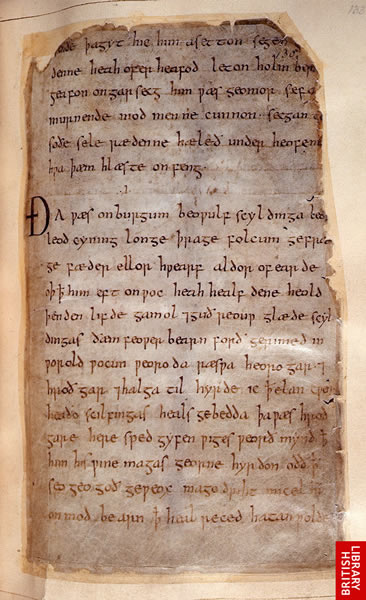 133
þagyt hie him asetton segen
denne heah ofer heafod leton holm ber
geafon on garsecg him ƿæs geomor sefa
murnende mod men ne cunnon secgan to
soðe sele rædenne hæleð under heofen
hƿa þæm hlæste onfeng.
Ða ƿæs on burgum beoƿulf scyldinga
leod cyning longe þrage folcum gefræ
ge fæder ellor hƿearf aldor of earde
oþ ꝥ him eft onƿoc heah healf dene heold
þenden lifde gamol ⁊ guð reouƿ glæde scyl
dingas ðæm feoƿer bearn forð gerimed in
ƿorold ƿocun ƿeoroda ræsƿa heoro gar ⁊
hroð gar ⁊ halga til hyrde ic ꝥ elan cƿen
heaðo scilfingas heals gebedda þa ƿæs hroð
gare here sped gyfen ƿiges ƿeorð mynd ꝥ
him his ƿine magas georne hyrdon oðð ꝥ
seo geogoð geƿeox mago driht micel him
on mod bearn ꝥ heal reced hatan ƿolde
BRITISH
LIBRARY